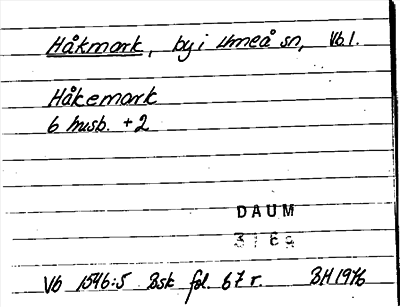 Håkmark, by i Umeå sn, Vb l.
Håkemark
6 husb. + 2
DAUM
3769
Vb 1546:5 Bsk fol. 67 r. BH 1976